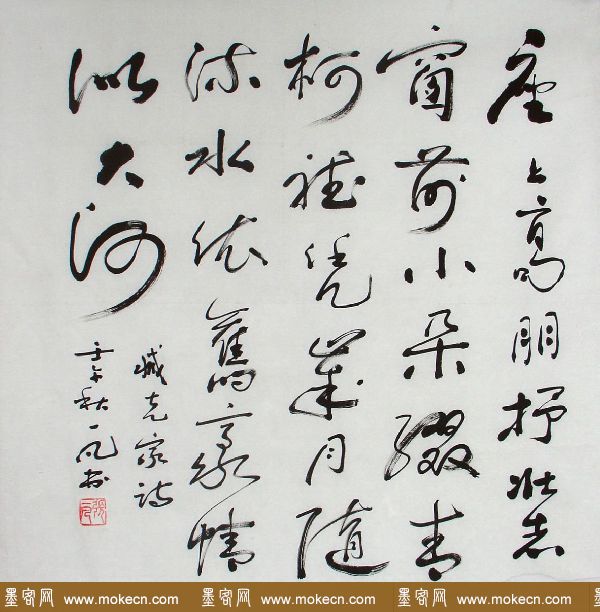 座上高朋抒壮志
窗前小朵缀青
柯任凭岁月随
流水依旧豪情
似大河
臧克家诗
壬午秋一凡书
墨客网 www.mokecn.com 墨客网 www.mokecn.com 墨客网 www.mokecn.com